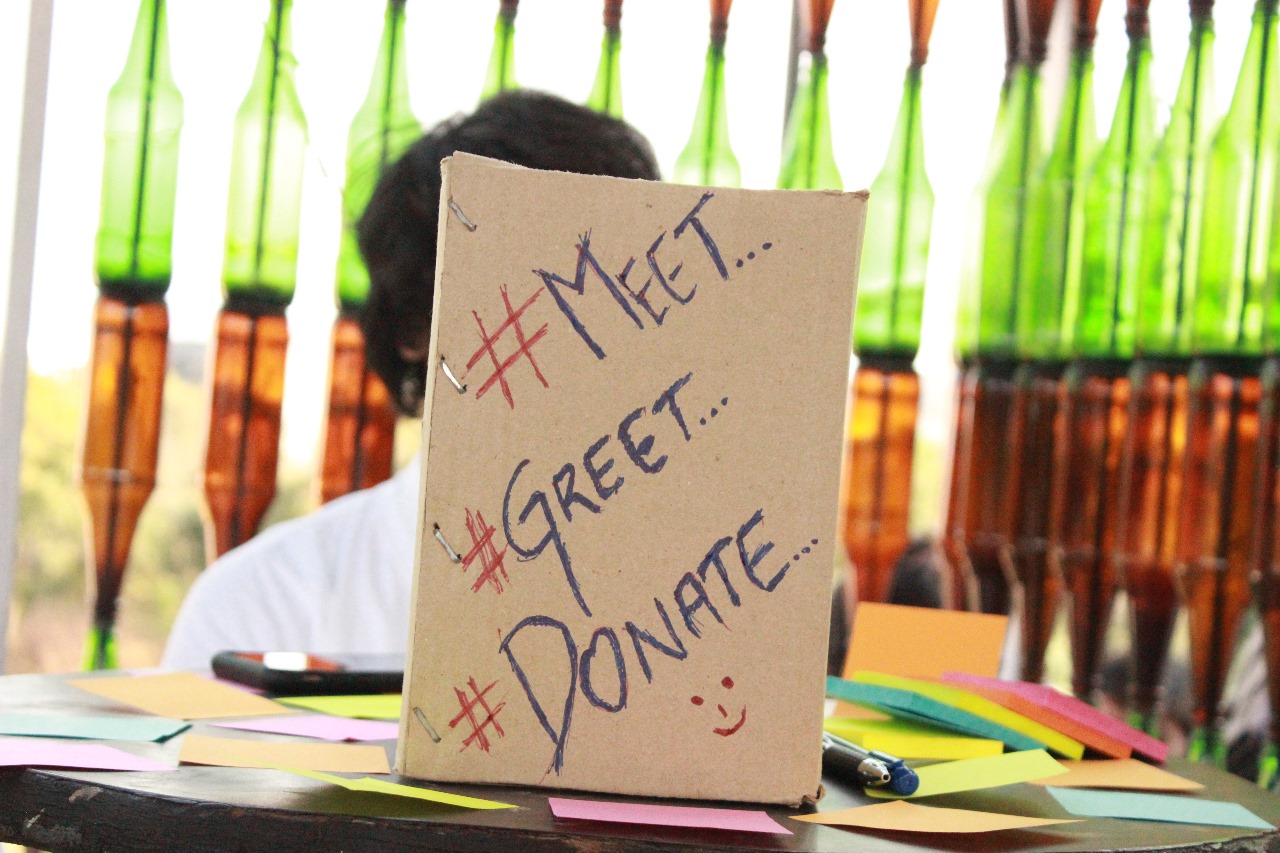 #MEET...
#GREET...
#DONATE...